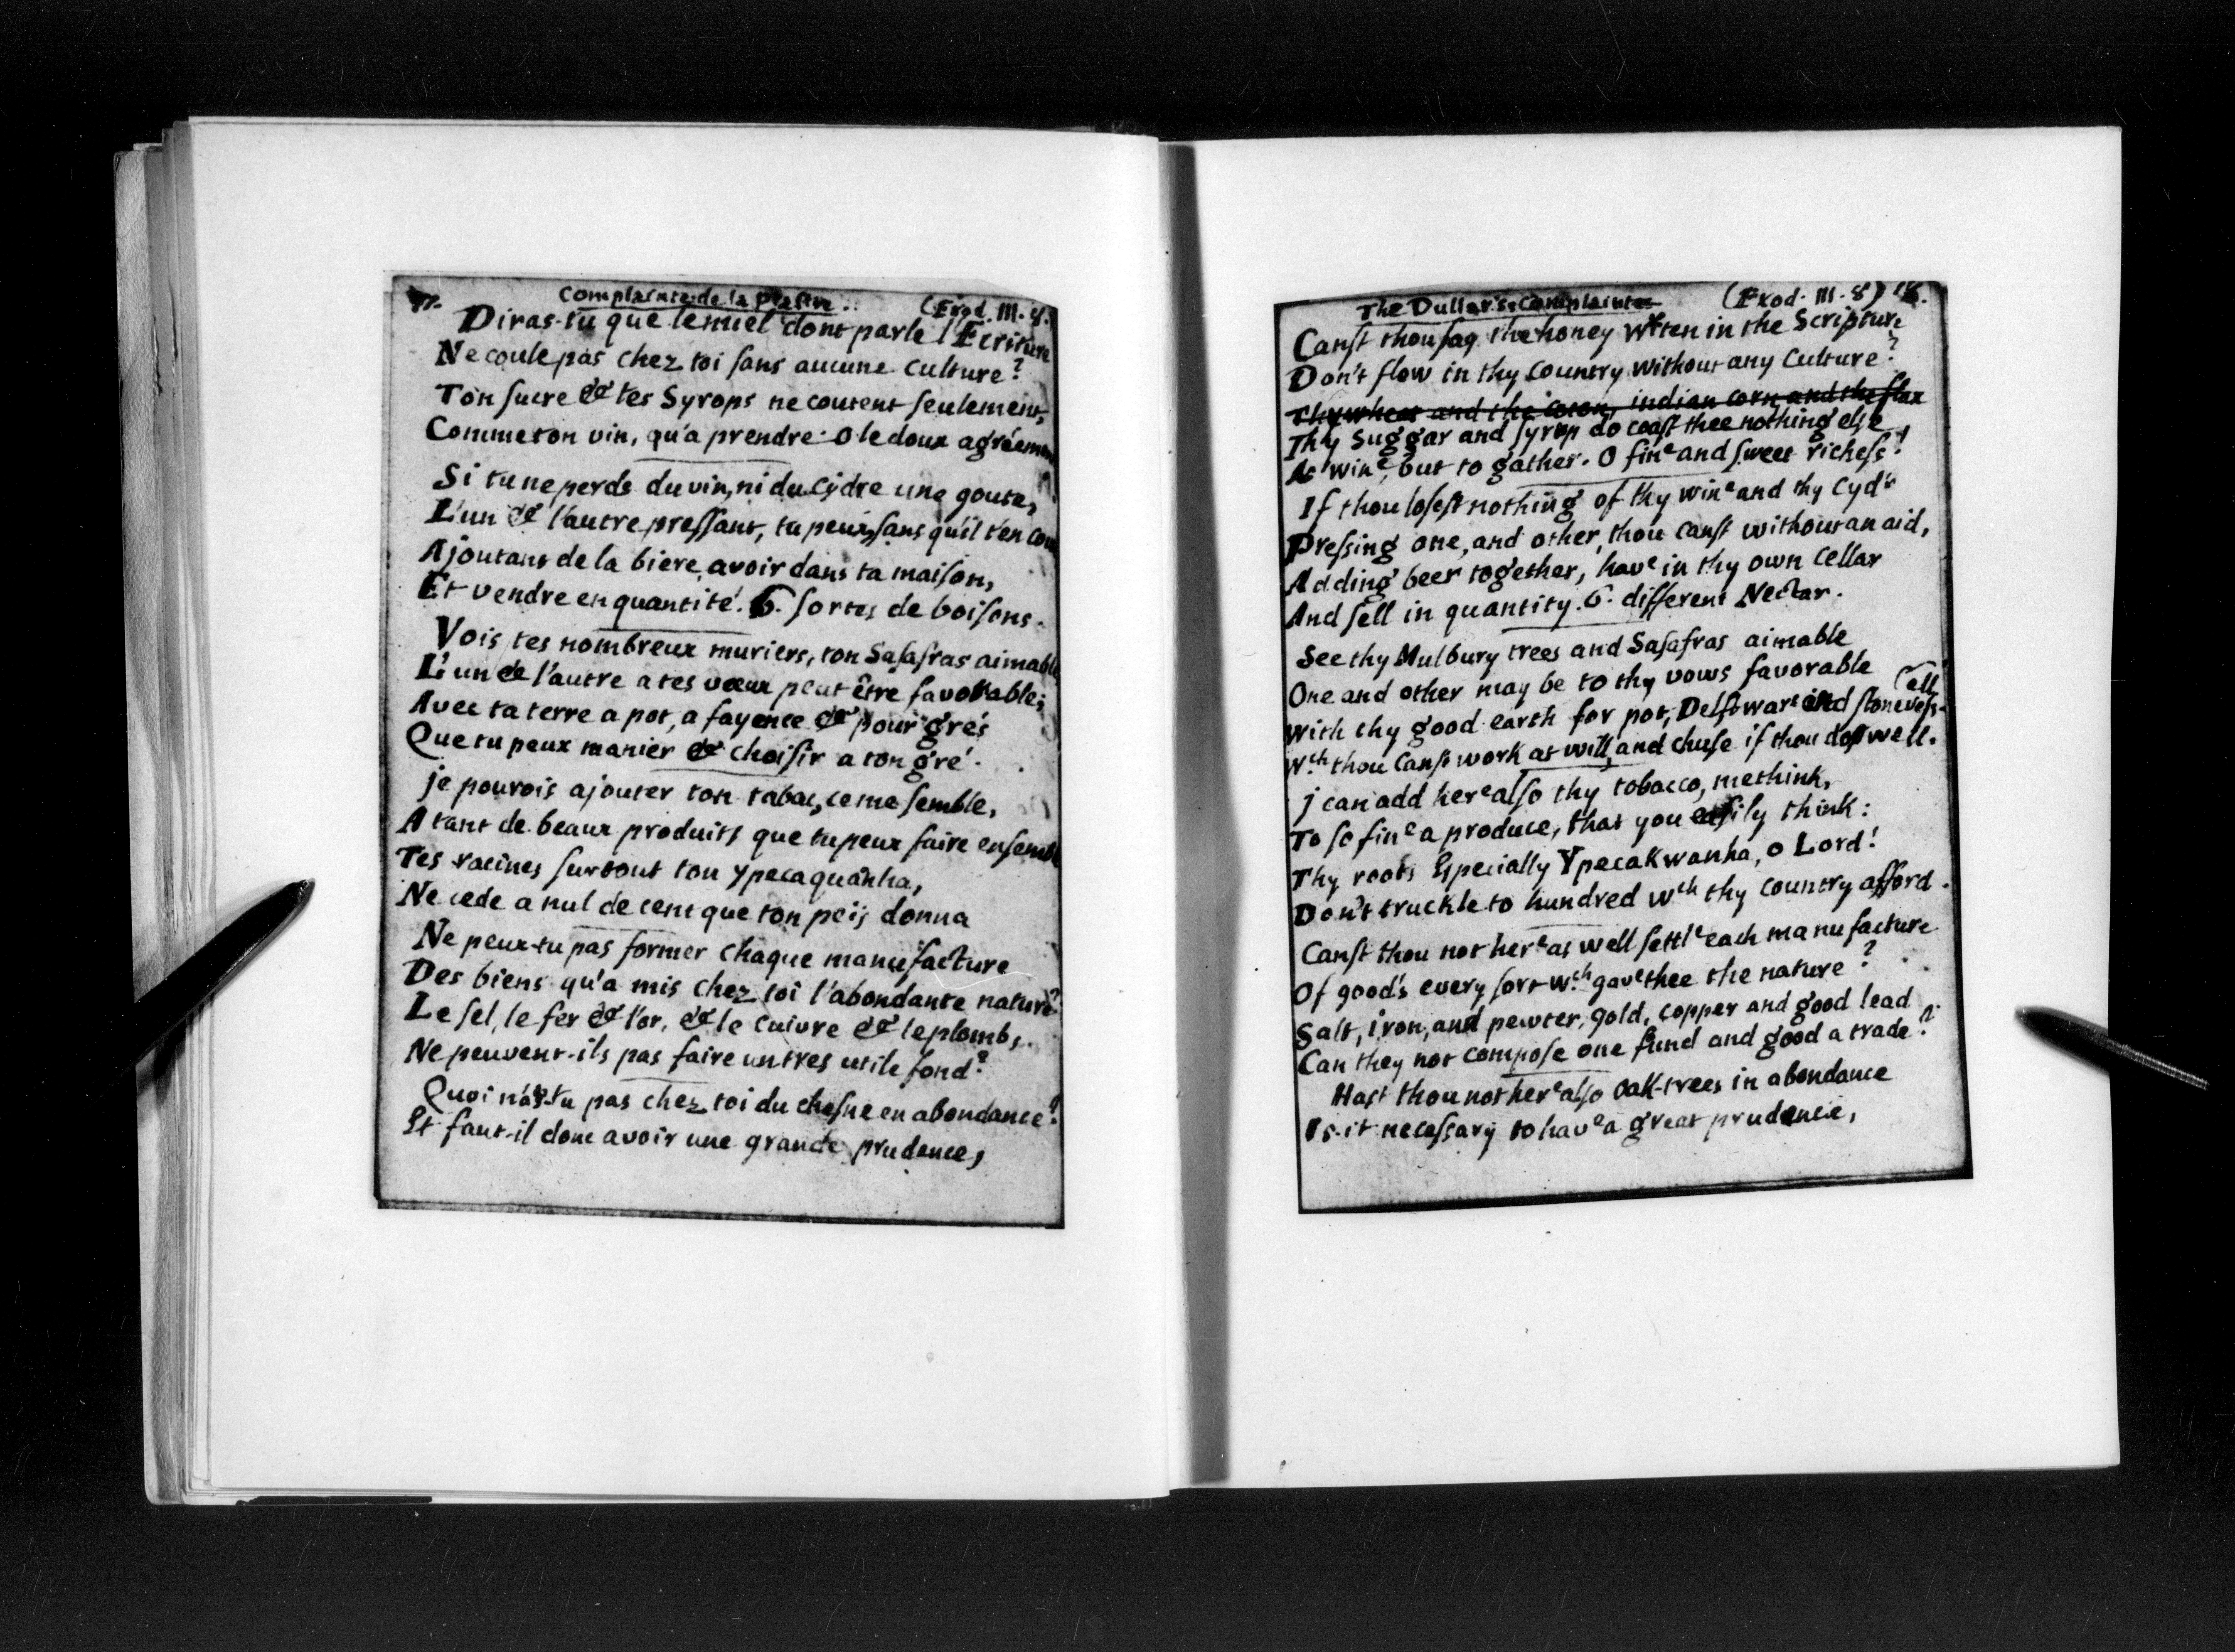 77. Complainte de la Piastre. (Exod. III. 8.)
Diras-tu que le miel dont parle l'Ecriture
Ne coule pas chez toi sans aucune culture?
Ton sucre & tes Syrops ne coutent seulement,
Comme ton vin, qu'a prendre. O le doux agrémen
Si tu ne perds du vin, ni du Cÿdre une goute,
L'un & l'autre pressant, tu peux, sans qu'il t'en cou
Ajoutant de la biere avoir dans ta maison,
Et vendre en quantité. 6. sortes de boisons.
Vois tes nombreux muriers, ton Sasafras aimable
L'un & l'autre a tes vœux peut être favorable;
Avec ta terre a pot, a fayence & pour grés
Que tu peux manier & choisir a ton gré.
je pourois ajouter ton tabac, ce me semble,
A tant de beaux produits que tu peux faire ensemble
Tes racines surtout ton ypecaquanha,
Ne cede a nul de cent que ton peis donna
Ne peux-tu pas former chaque manufacture
Des biens qu'a mis chez toi l'abondante nature?
Le sel, le fer & l'or, & le cuivre & le plomb,
Ne peuvent-ils pas faire un tres utile fond?
Quoi n'as-tu pas chez toi du chesne en abondance?
Et faut-il donc avoir une grande prudence,
The Dullar's Complaint (Exod. III. 8) 78.
Canst thou say the honey Wten in the Scripture
Don't flow in thy Country without any Culture?
Thy wheat and the coton, indian corn and the flax
Thy Suggar and syrup do coast thee nothing else
As wine, but to gather. O fine and sweet richess!
If thou losest nothing of thy wine and thy Cyd'r
Pressing one, and other, thou canst without an aid,
Adding beer together, have in thy own Cellar
And sell in quantity. 6. different Nectar.
See thy Mulbury trees and Sasafras aimable
One and other may be to thy vows favorable
With thy good earth for pot, Delftware and stone vess-
(ell
Wch thou Canst work at will, and chuse if thou dost well.
j can add here also thy tobacco, methink,
To so fine a produce, that you easily think:
Thy roots Especially Ypecakwanha, o Lord!
Don't truckle to hundred wch thy Country afford.
Canst thou not here as well settle each manufacture
Of good's every sort wch gave thee the nature?
Salt, iron, and pewter, gold, copper and good lead
Can they not compose one fund and good a trade?
Hast thou not here also Oak-trees in abondance
Is-it necessary to have a great prudence,